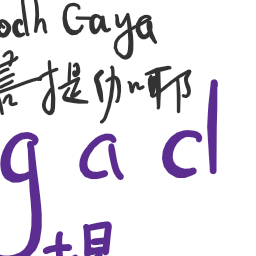 odh Gaya
提伽耶
g a d